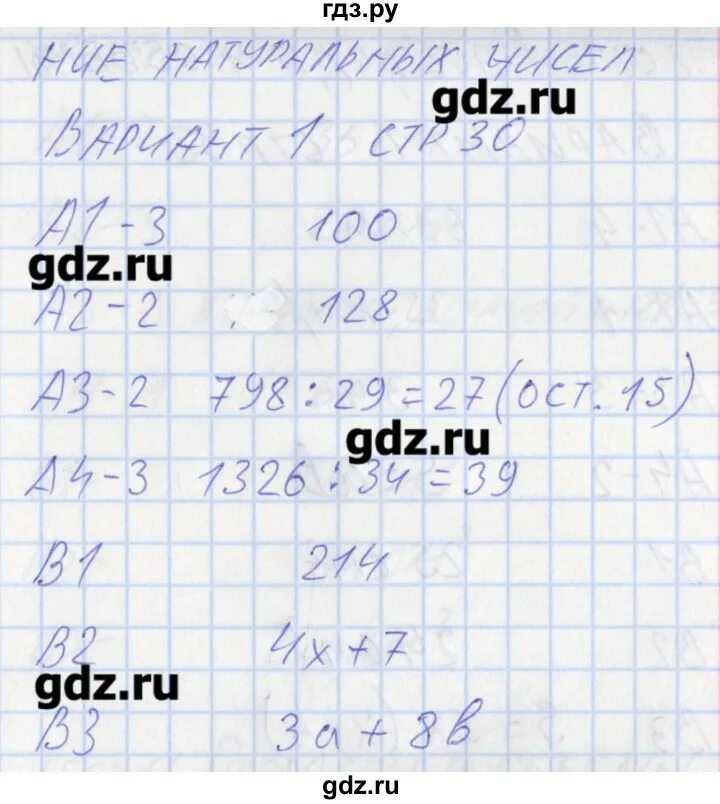 гдз.ру
НИЕ НАТУРАЛЬНЫХ ЧИСЕЛ
gdz.ru
ВАРИАНТ 1 СТР 30
А1-3 100
gdz.ru
А2-2 128
А3-2 798:29=27(ост.15)
gdz.ru
А4-3 1326:34=39
В1 214
В2 4x+7
gdz.ru
В3 3a+8b
gdz.ru